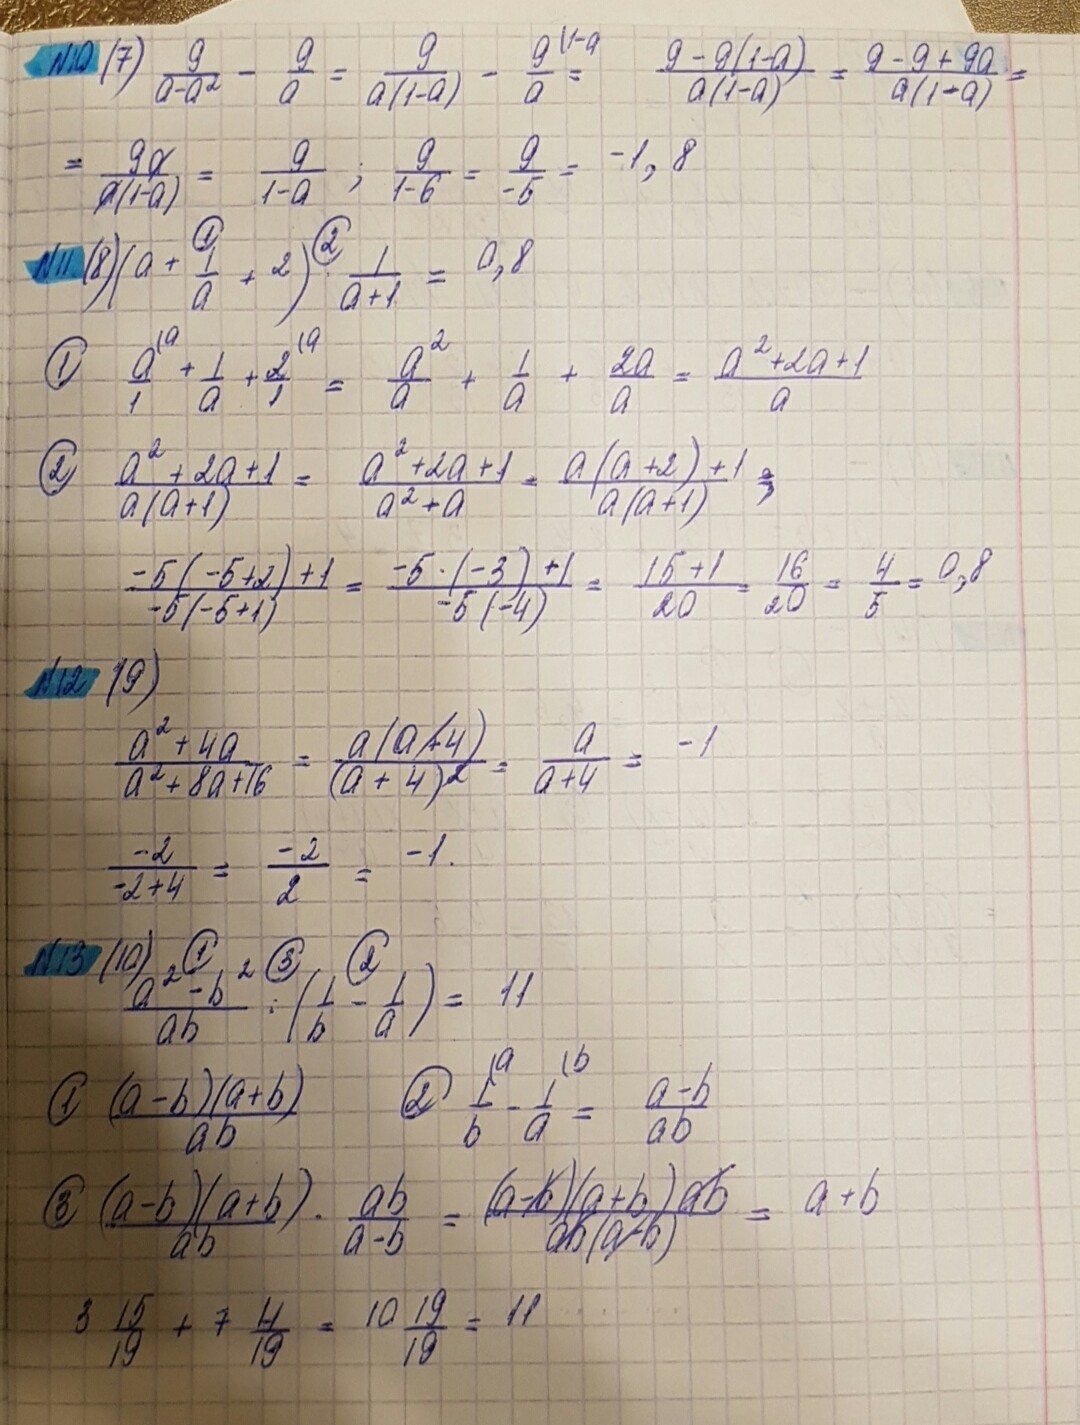 N10 (7) 9/(a-a²) - 9/a = 9/(a(1-a)) - 9/a ⁽¹⁻ᵃ = (9-9(1-a))/(a(1-a)) = (9-9+9a)/(a(1-a)) =
= 9a/(a(1-a)) = 9/(1-a) ; 9/(1-6) = 9/-5 = -1,8
N11 (8) (a + ① 1/a + 2) ② · 1/(a+1) = 0,8
① a/1 ⁽ᵃ + 1/a + 2/1 ⁽ᵃ = a²/a + 1/a + 2a/a = (a²+2a+1)/a
② (a²+2a+1)/(a(a+1)) = (a²+2a+1)/(a²+a) = (a(a+2)+1)/(a(a+1)) ;
(-5(-5+2)+1)/(-5(-5+1)) = (-5·(-3)+1)/(-5(-4)) = (15+1)/20 = 16/20 = 4/5 = 0,8
N12 (9)
(a²+4a)/(a²+8a+16) = (a(a+4))/((a+4)²) = a/(a+4) = -1
-2/(-2+4) = -2/2 = -1.
N13 (10) ① ③ ②
(a²-b²)/(ab) : (1/b - 1/a) = 11
① ((a-b)(a+b))/(ab) ② 1/b ⁽ᵃ - 1/a ⁽ᵇ = (a-b)/(ab)
③ ((a-b)(a+b))/(ab) · ab/(a-b) = ((a-b)(a+b)ab)/(ab(a-b)) = a+b
3 15/19 + 7 4/19 = 10 19/19 = 11